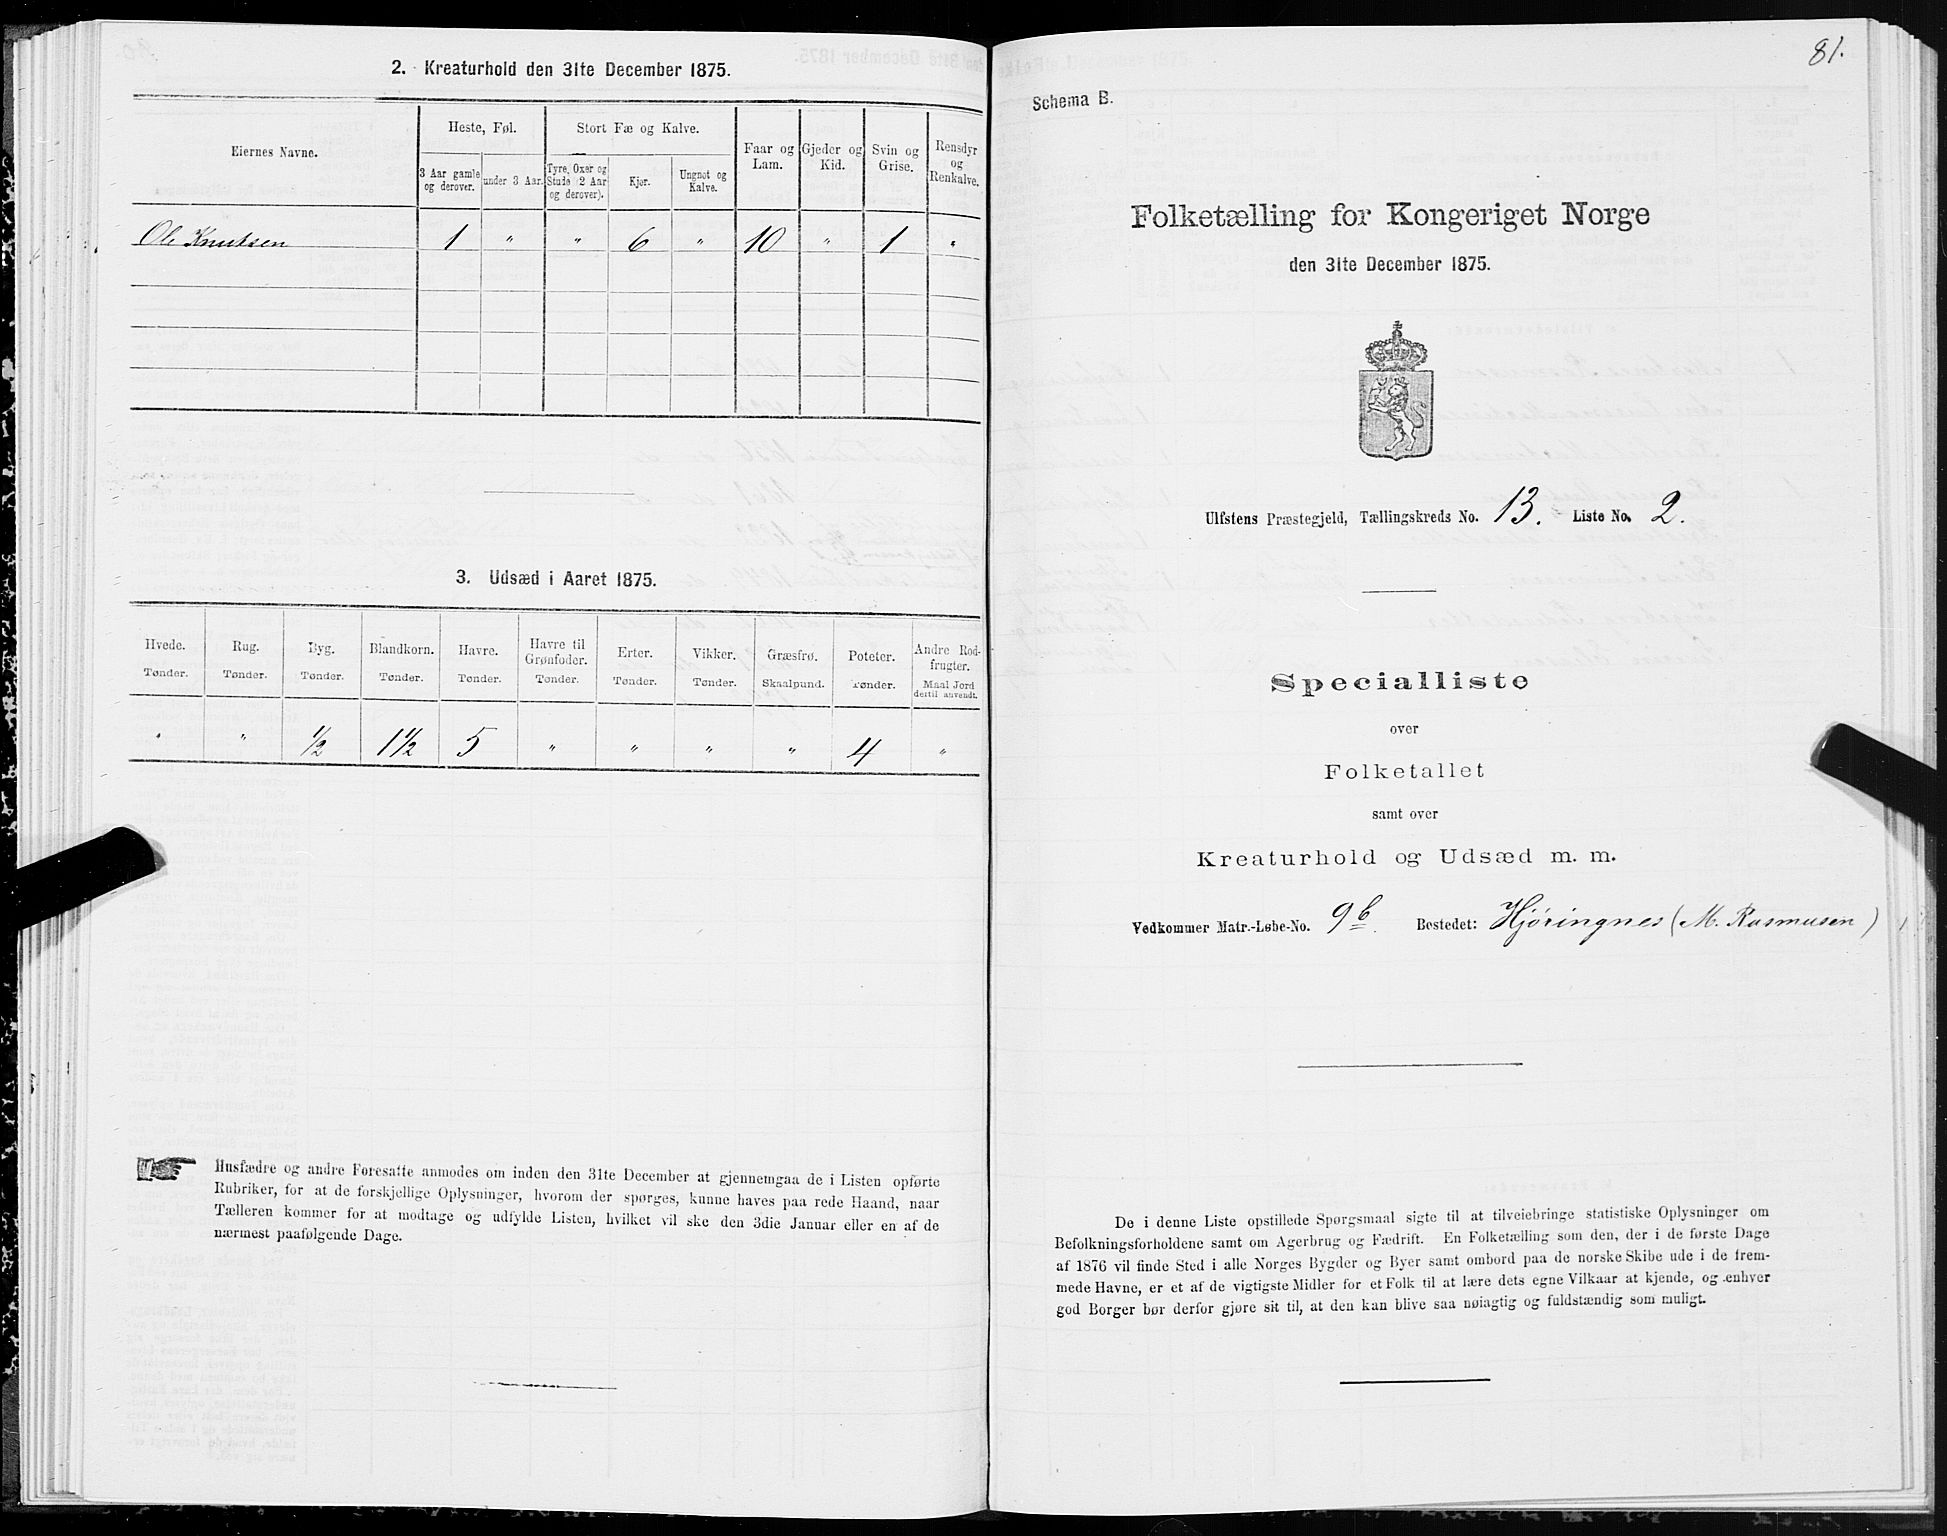 2. Kreaturhold den 31te December 1875.
Eiernes Navne.
Heste, Føl.
Stort Fæ og Kalve.
Faar og Lam.
Gjeder og Kid.
Svin og Grise.
Rensdyr og Renkalve.
3 Aar gamle og derover.
under 3 Aar.
Tyre, Oxer og Stude (2 Aar og derover).
Kjør.
Ungnøt og Kalve.
Ole Knutsen 1 " " 6 " 10 " 1 "
3. Udsæd i Aaret 1875.
Hvede. Rug. Byg. Blandkorn. Havre. Havre til Grønfoder. Erter. Vikker. Græsfrø. Poteter. Andre Rodfrugter.
Tønder. Tønder. Tønder. Tønder. Tønder. Tønder. Tønder. Tønder. Skaalpund. Tønder. Maal Jord dertil anvendt.
" " 1/2 1 1/2 5 " " " " 4 "
Husfædre og andre Foresatte anmodes om inden den 31te December at gjennemgaa de i Listen opførte
Rubriker, for at de forskjellige Oplysninger, hvorom der spørges, kunne haves paa rede Haand, naar
Tælleren kommer for at modtage og udfylde Listen, hvilket vil ske den 3die Januar eller en af de
nærmest paafølgende Dage.
81.
Schema B.
Folketælling for Kongeriget Norge
den 31te December 1875.
Ulfstens Præstegjeld, Tællingskreds No. 13. Liste No. 2.
Specialliste
over
Folketallet
samt over
Kreaturhold og Udsæd m. m.
Vedkommer Matr.-Løbe-No. 9b. Bostedet: Hjøringnes (M. Rasmusen)
De i denne Liste opstillede Spørgsmaal sigte til at tilveiebringe statistiske Oplysninger om
Befolkningsforholdene samt om Agerbrug og Fædrift. En Folketælling som den, der i de første Dage
af 1876 vil finde Sted i alle Norges Bygder og Byer samt ombord paa de norske Skibe ude i de frem-
mede Havne, er et af de vigtigste Midler for et Folk til at lære dets egne Vilkaar at kjende, og enhver
god Borger bør derfor gjøre sit til, at den kan blive saa nøiagtig og fuldstændig som muligt.